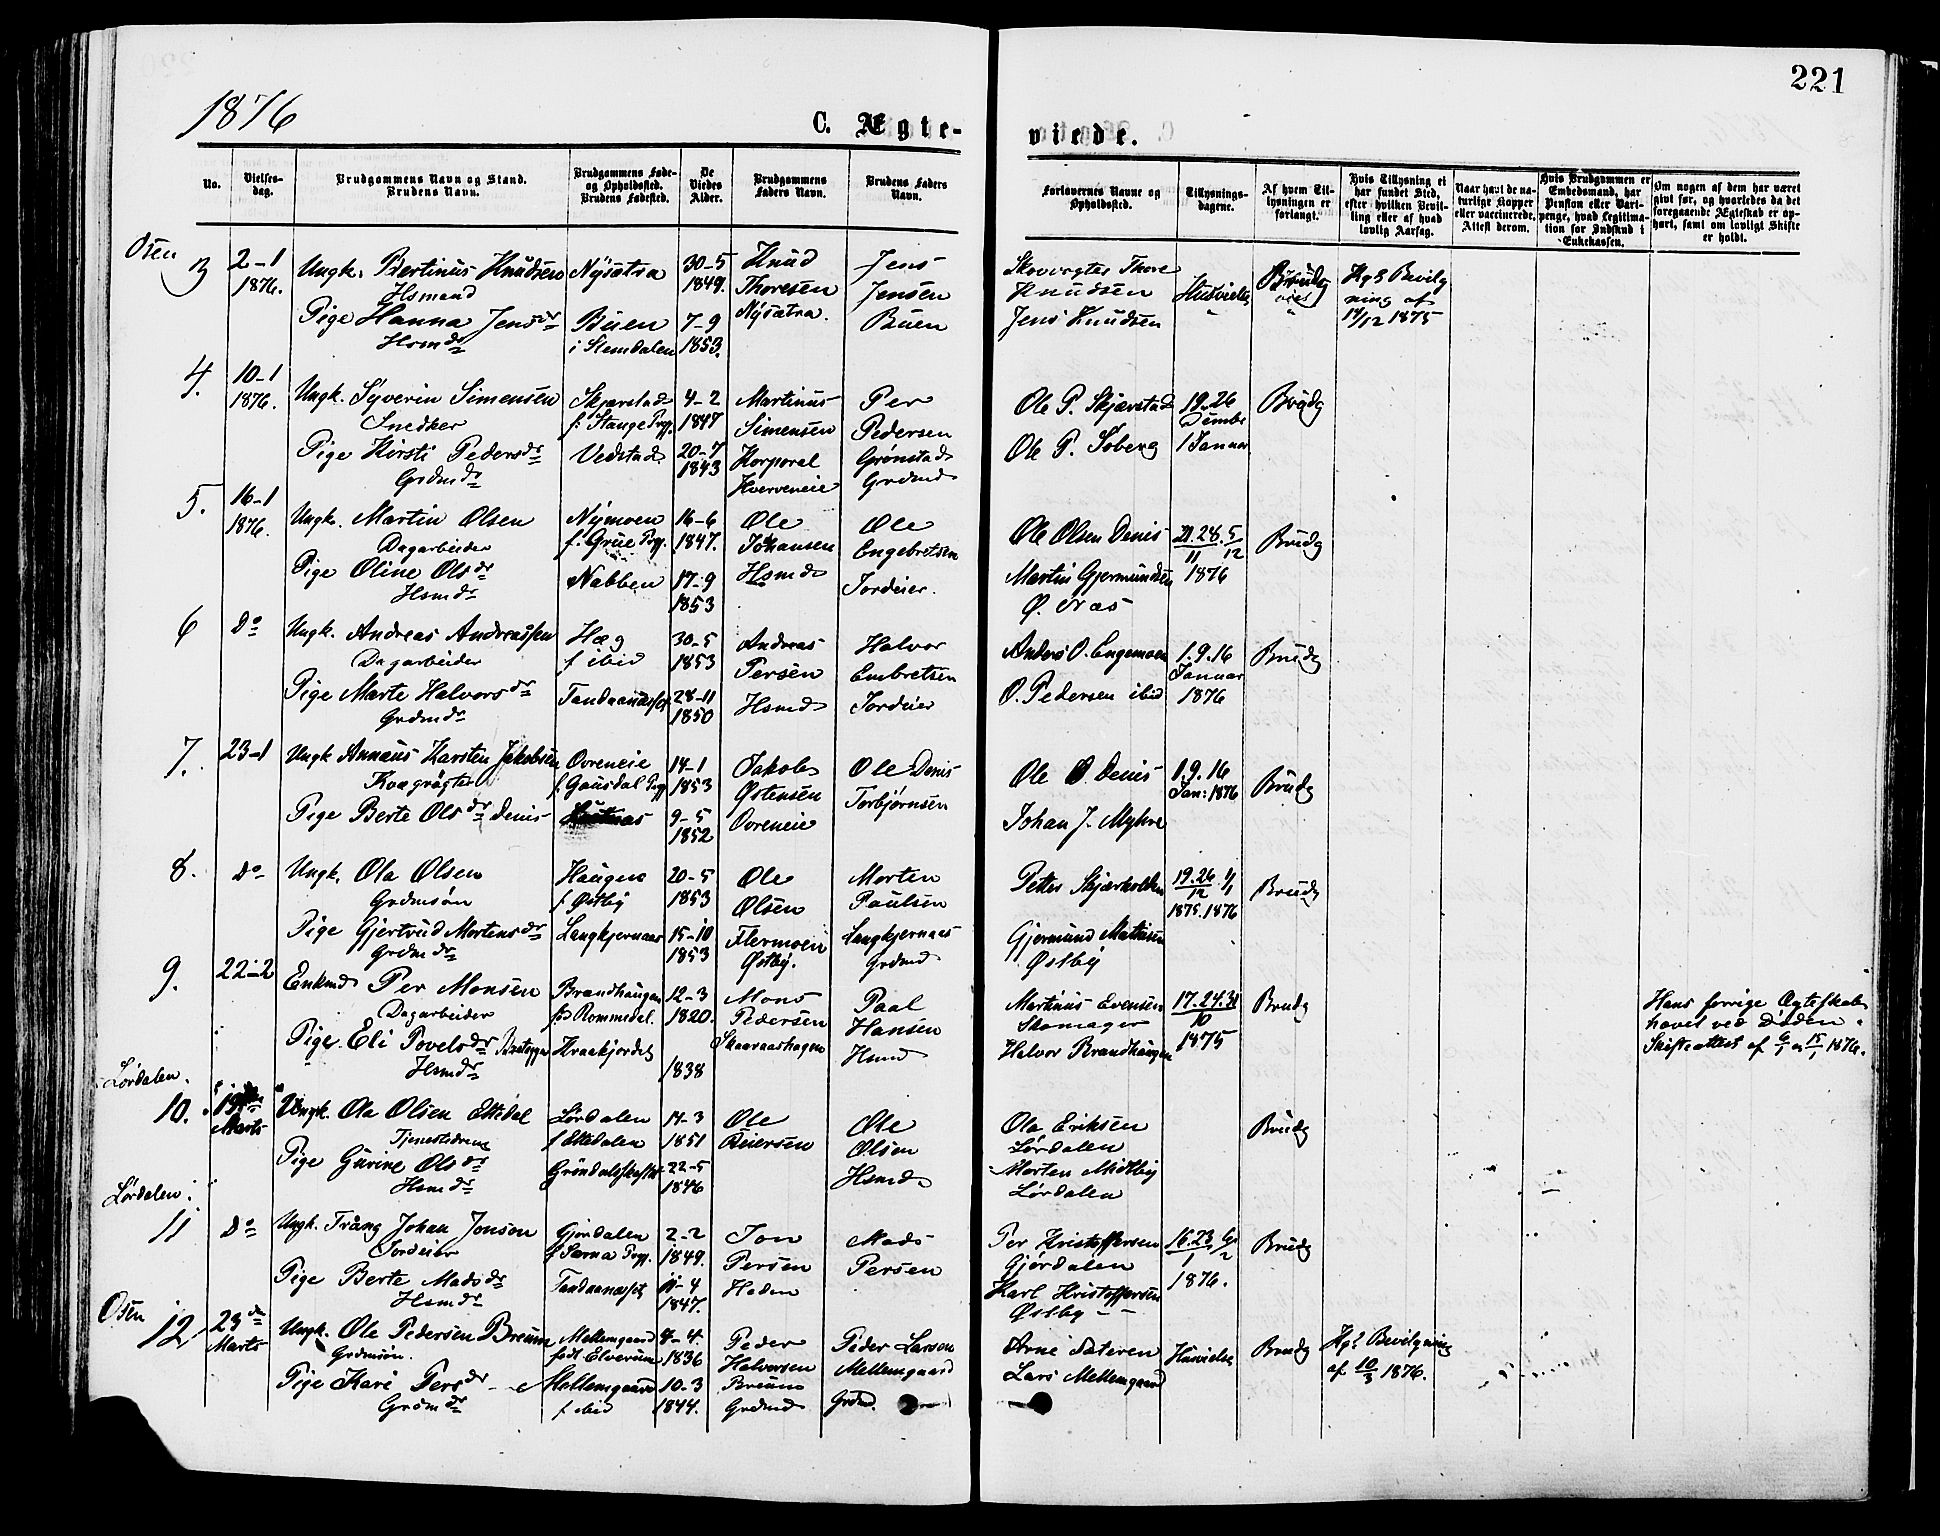 221
1876
C. Ægte- viede.
No.
Vielses-
dag.
Brudgommens Navn og Stand.
Brudens Navn.
Brudgommens Føde-
og Opholdssted.
Brudens Fødested.
De
Viedes
Alder.
Brudgommens
Faders Navn.
Brudens Faders
Navn.
Forlovernes Navne og
Opholdssted.
Tillysnings-
dagene.
Af hvem Til-
lysningen er
forlangt.
Hvis Tillysning ei
har fundet Sted,
efter hvilken Bevil-
ling eller af hvad
lovlig Aarsag.
Naar havt de na-
turlige Kopper
eller vaccinerede.
Attest derom.
Hvis Brudgommen er
Embedsmand, har
Pension eller Vart-
penge, hvad Legitima-
tion for Indskud i
Enkekassen.
Om nogen af dem har været
gift før, og hvorledes da det
foregaaende Ægteskab er op-
hørt, samt om lovligt Skifte
er holdt.
Osen
3
2-1
1876.
Ungk. Bertinus Knudsen
Hsmand
Pige Hanna Jensdr
Hsmdr
Nysætra
Buen
i Slemdalen
30-5
1849.
7-9
1853.
Knud
Thoresen
Nysætra.
Jens
Jensen
Buen
Skovvogter Thore
Knudsen
Jens Knudsen
Husvielse
Kgl Bevilg
ning af
/12 1875
4.
10-1
1876.
Ungk. Syverin Simensen
Snedker
Pige Kirsti Pedersdr
Grdmdr
Skjærstad
f. Stange Prg.
Vedstad
4-2
1847
20-7
1843
Martinus
Simensen
Korporal
Kverveneie
Per
Pedersen
Grønstad
Grdmd
Ole P. Skjærstad
Ole P. Søberg
19. 26
Dembr
1 Januar
Brudg
5.
16-1
1876.
Ungk. Martin Olsen
Dagarbeider
Pige Oline Olsdr
Hsmdr
Nymoen
f. Grue Prg.
Nabben
16-6
1847.
17-9
1853
Ole
Johansen
Hsmd
Ole
Engebretsen
Jordeier.
Ole Olsen Denis
Martin Gjermundsen
Ø. Næs
21.28. 5/12
11
1876
Brudg
6
Do
Ungk. Andreas Andreassen
Dagarbeider
Pige Marte Halvorsdr
Grdmdr
Hæg
f ibid
Tandaanæset
30-5
1853
28-11
1850
Andreas
Persen
Hsmd
Halvor
Embretsen
Jordeier
Anders O. Engemoen
O. Pedersen ibid
1.9.16
Januar
1876
Brudg
7.
23-1
Ungk Annæus Karsten Jakobsen
Kvægrøgter
Pige Berte Olsdr Denis
Ovreneie
f. Gausdal Prg
14-1
1853
9-5
1852
Jakob
Østensen
Ovreneie
Ole Denis
Torbjørnsen
Ole O. Denis
Johan J. Myhre
1.9.16
Jan: 1876
Brudg
8.
Do
Ungk. Ola Olsen
Grdmsøn
Pige Gjertrud Mortensdr
Grdmdr
Haugen
f Østby
Langkjernaas
20-5
1853
15-10
1853
Ole
Olsen
Flermoen
Østby.
Morten
Paulsen
Langkjernaas
Grdmd
Petter Skjærholden
Gjermund Matisen
Østby
19.26 1/1
12
1875. 1876
Brudg
9.
22-2
Enkmd Per Monsen
Dagarbeider
Pige. Eli Povelsdr
Hsmdr
Brandhaugen
fr Rommedal.
Kraakjordet
12-3
1820.
1838
Mons
Pedersen
Skaaraashagen
Paal
Hansen
Hsmd
Martinus Evensen
Skomager
Halvor Brandhaugen
17.24.31
10
1875
Brudg
Hans forrige Ægteskab
hævet ved Døden.
Skifteattest af 6/1 & 15/1 1876.
Lørdalen.
10.
19de
Marts
Ungk. Ola Olsen Ettedal
Tjenestedreng
Pige Gurine Olsdr
Hsmdr
Lørdalen
f Ettedalen
14-3
1851
22-5
1846
Ole
Reiersen
Ole
Olsen
Hsmd
Ola Eriksen
Lørdalen
Morten Midtby
Lørdalen
Brudg
Lørdalen.
11
Do
Ungk. Trang Johan Jonson
Jordeier
Pige Berte Madsdr
Hsmdr
Gjordalen
f Særna Prg.
Tandaanæset
2-2
1849.
11-4
1847.
Jon
Persen
Heden
Mads
Persen
Per Kristoffersen
Gjørdalen
Karl Kristoffersen
Østby
16.23
1
1876.
Brudg
Osen
12
23de
Marts
Ungk. Ole Pedersen Breum
Grdmsøn.
Pige Kari Persdr
Grdmdr
Mellemgaard
født Elverum
Mellemgaard
f ibid
4-4
1836
10-3
1844.
Peder
Halvorsen
Breum
Grdmd
Peder Larsen
Mellemgaard
Grdmd.
Arne Sæteren
Lars Mellemgaard
Husvielse
Brudg
Kgl Bevilgning
af 10/3 1876.